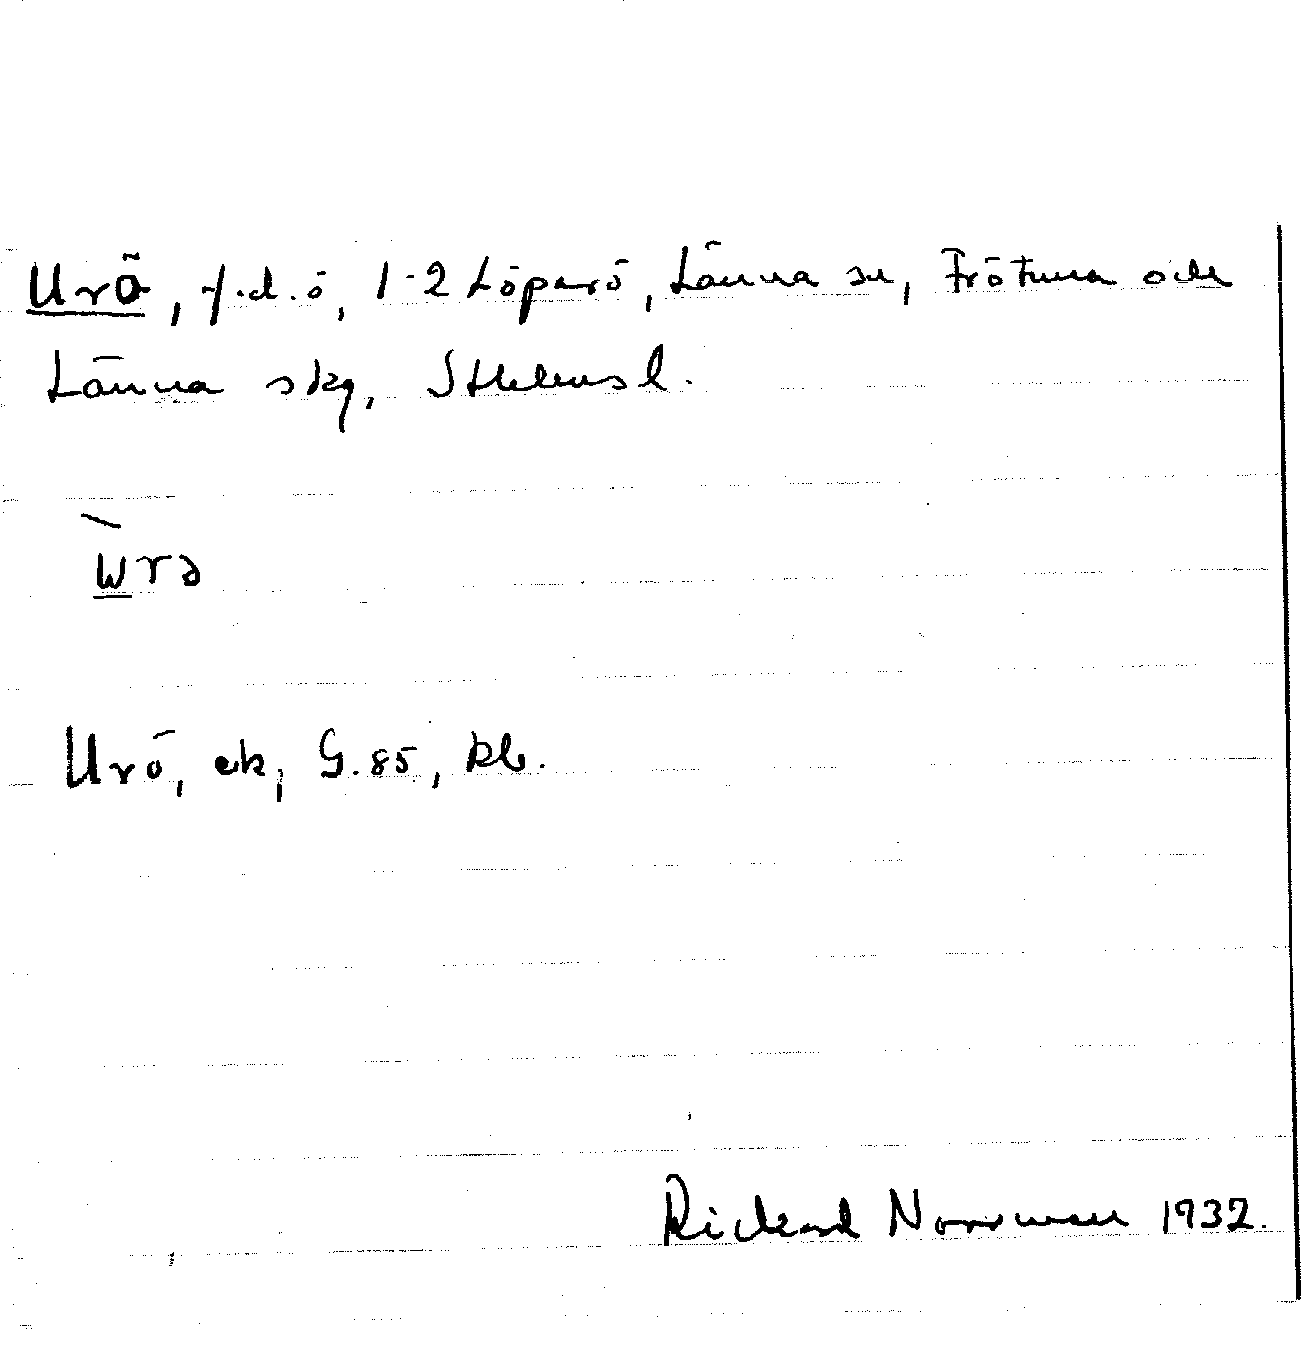 Urö, f.d. ö, 1-2 Löparö, Länna sn, Frötuna och
Länna skg, Sthlms l.
ẁrə
Urö, ek, G.85, kb.
Rickard Norrman 1932.